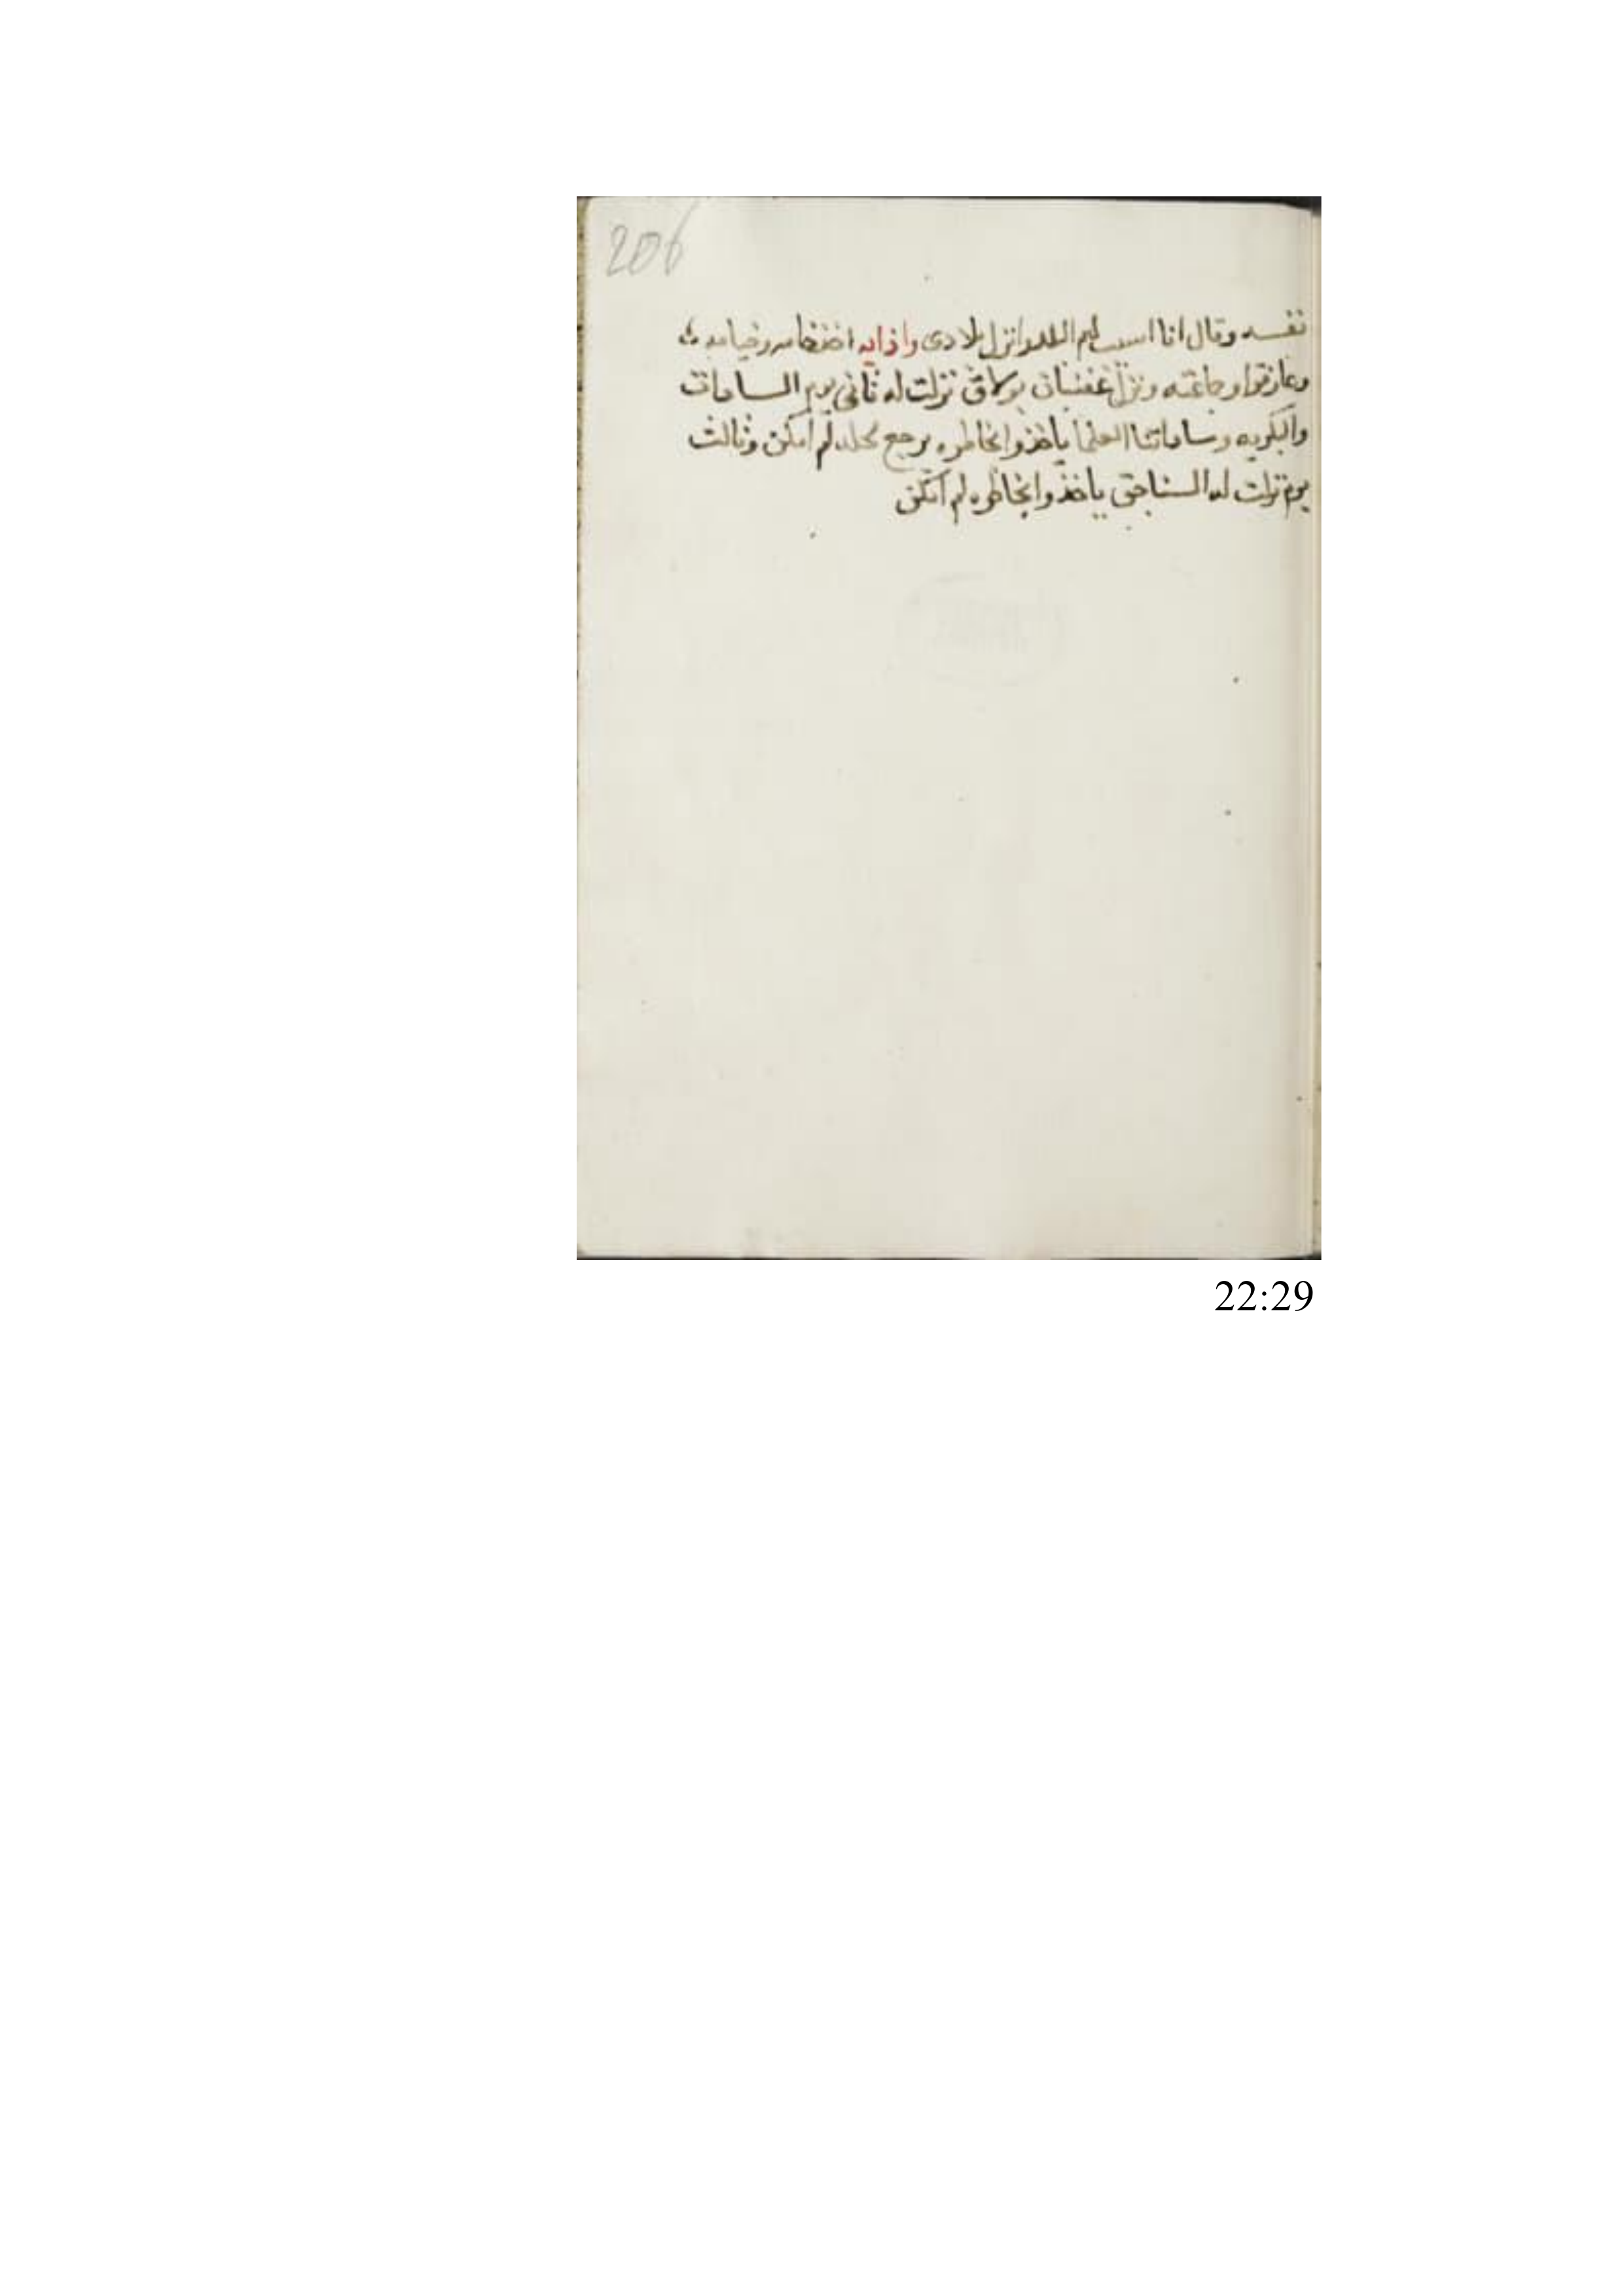 206
نفسه وقال انا اسيب لهم البلد وانزل بلادى واذا به اخذ خامه وخيامه
وعازقوا وجماعته ونزل غضبان بولاق نزلت له ثانى يوم السادات
والبكريه وساداتنا العلما ياخذوا بخاطره يرجع لمحله لم امكن وثالث
يوم نزلت له السناجق ياخذوا بخاطره لم امكن
22:29